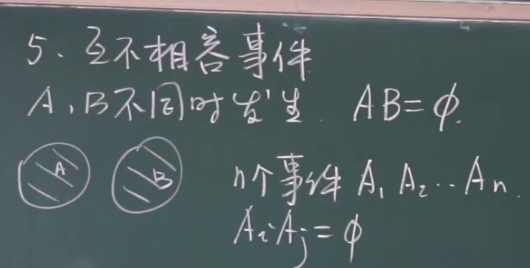 5、互不相容事件
A,B不同时发生. AB=ϕ.
A B
n个事件 A₁ A₂…An.
AᵢAⱼ=ϕ